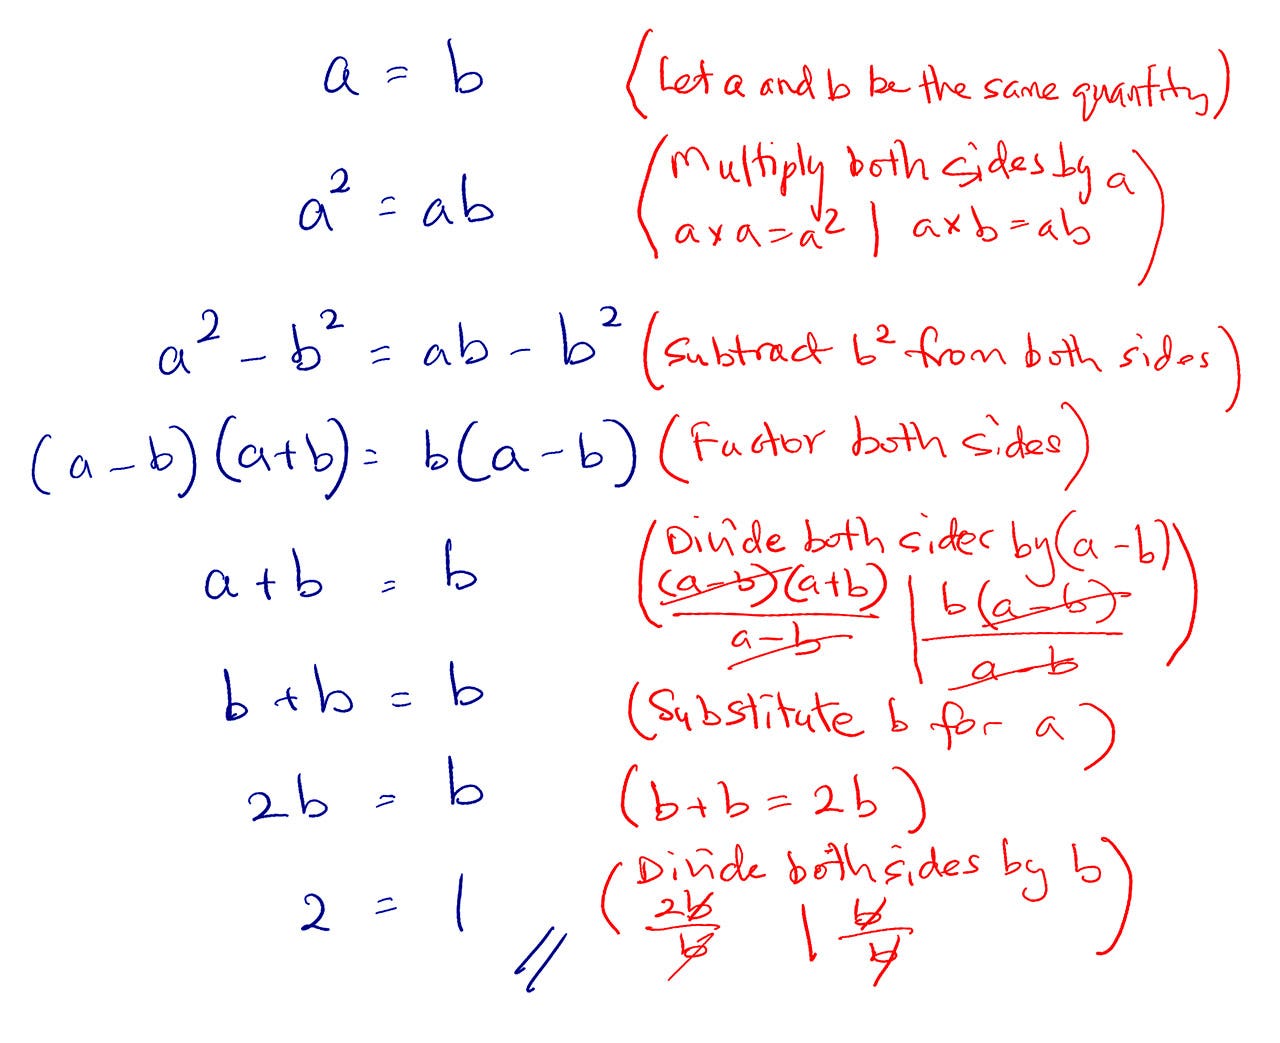 a = b (Let a and b be the same quantity)
a² = ab (Multiply both sides by a
a x a = a² | a x b = ab)
a² - b² = ab - b² (Subtract b² from both sides)
(a - b)(a + b) = b(a - b) (Factor both sides)
a + b = b (Divide both sides by (a - b)
(a - b)(a + b) | b(a - b)
a - b a - b)
b + b = b (Substitute b for a)
2b = b (b + b = 2b)
2 = 1 // (Divide both sides by b
2b | b
b b)